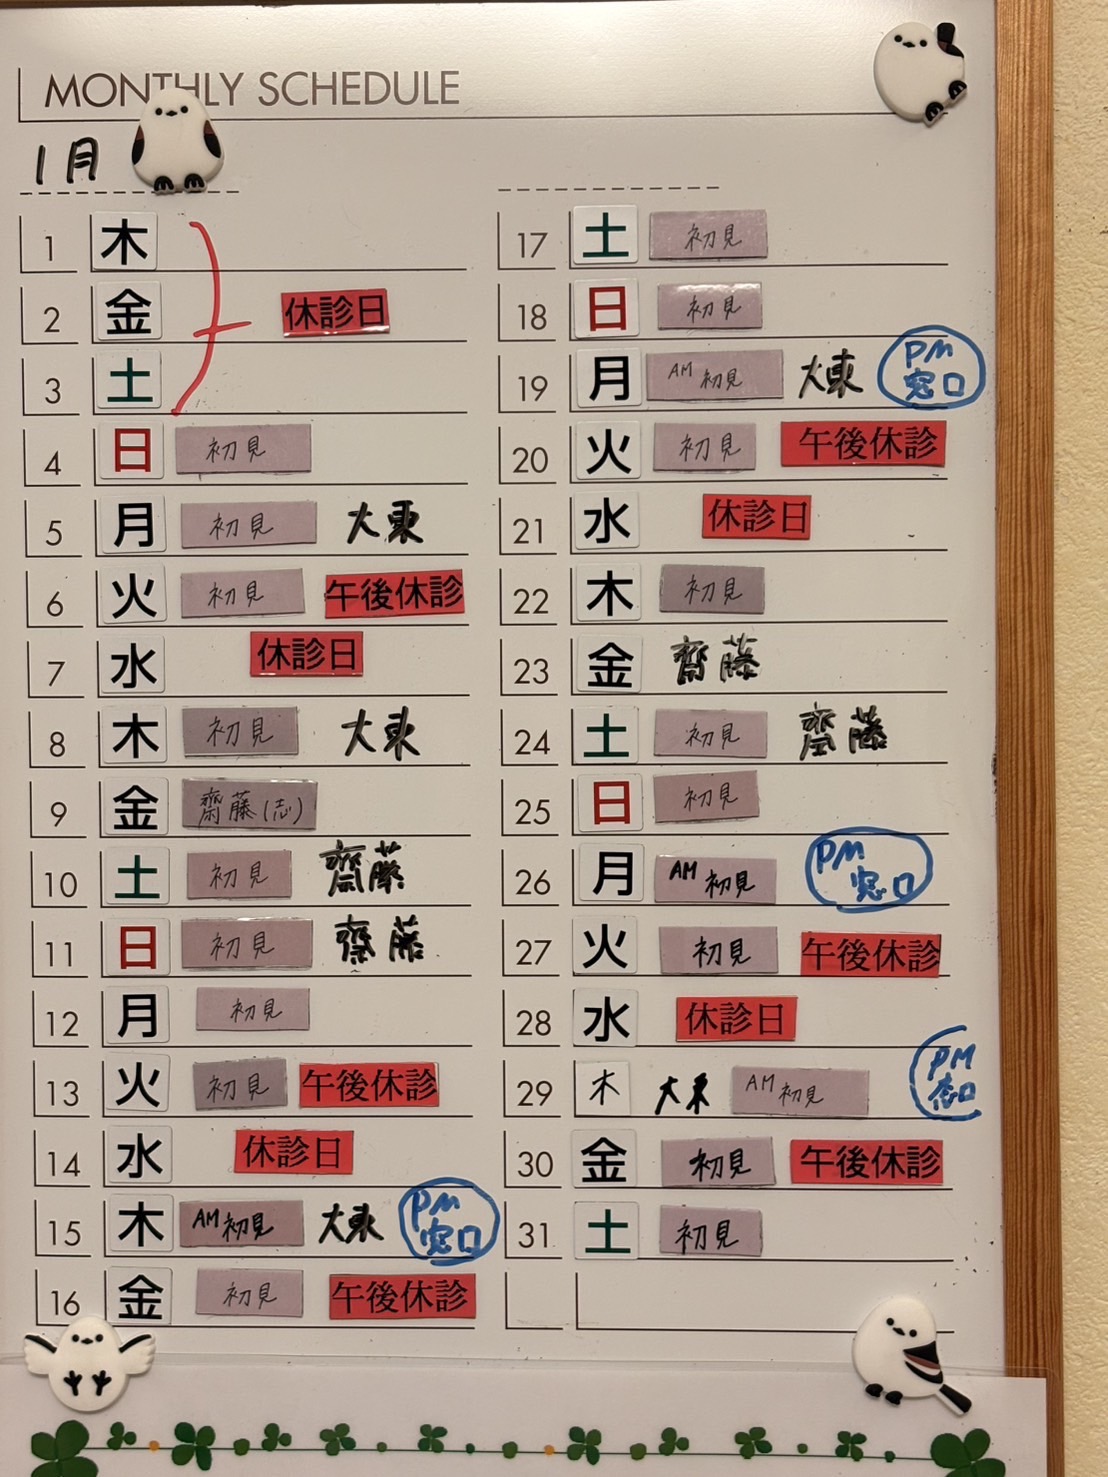 MONTHLY SCHEDULE
1月
1 木
2 金 休診日
3 土
4 日 初見
5 月 初見 大東
6 火 初見 午後休診
7 水 休診日
8 木 初見 大東
9 金 齋藤(志)
10 土 初見 齋藤
11 日 初見 齋藤
12 月 初見
13 火 初見 午後休診
14 水 休診日
15 木 AM初見 大東 PM窓口
16 金 初見 午後休診
17 土 初見
18 日 初見
19 月 AM初見 大東 PM窓口
20 火 初見 午後休診
21 水 休診日
22 木 初見
23 金 齋藤
24 土 初見 齋藤
25 日 初見
26 月 AM初見 PM窓口
27 火 初見 午後休診
28 水 休診日
29 木 大東 AM初見 PM窓口
30 金 初見 午後休診
31 土 初見